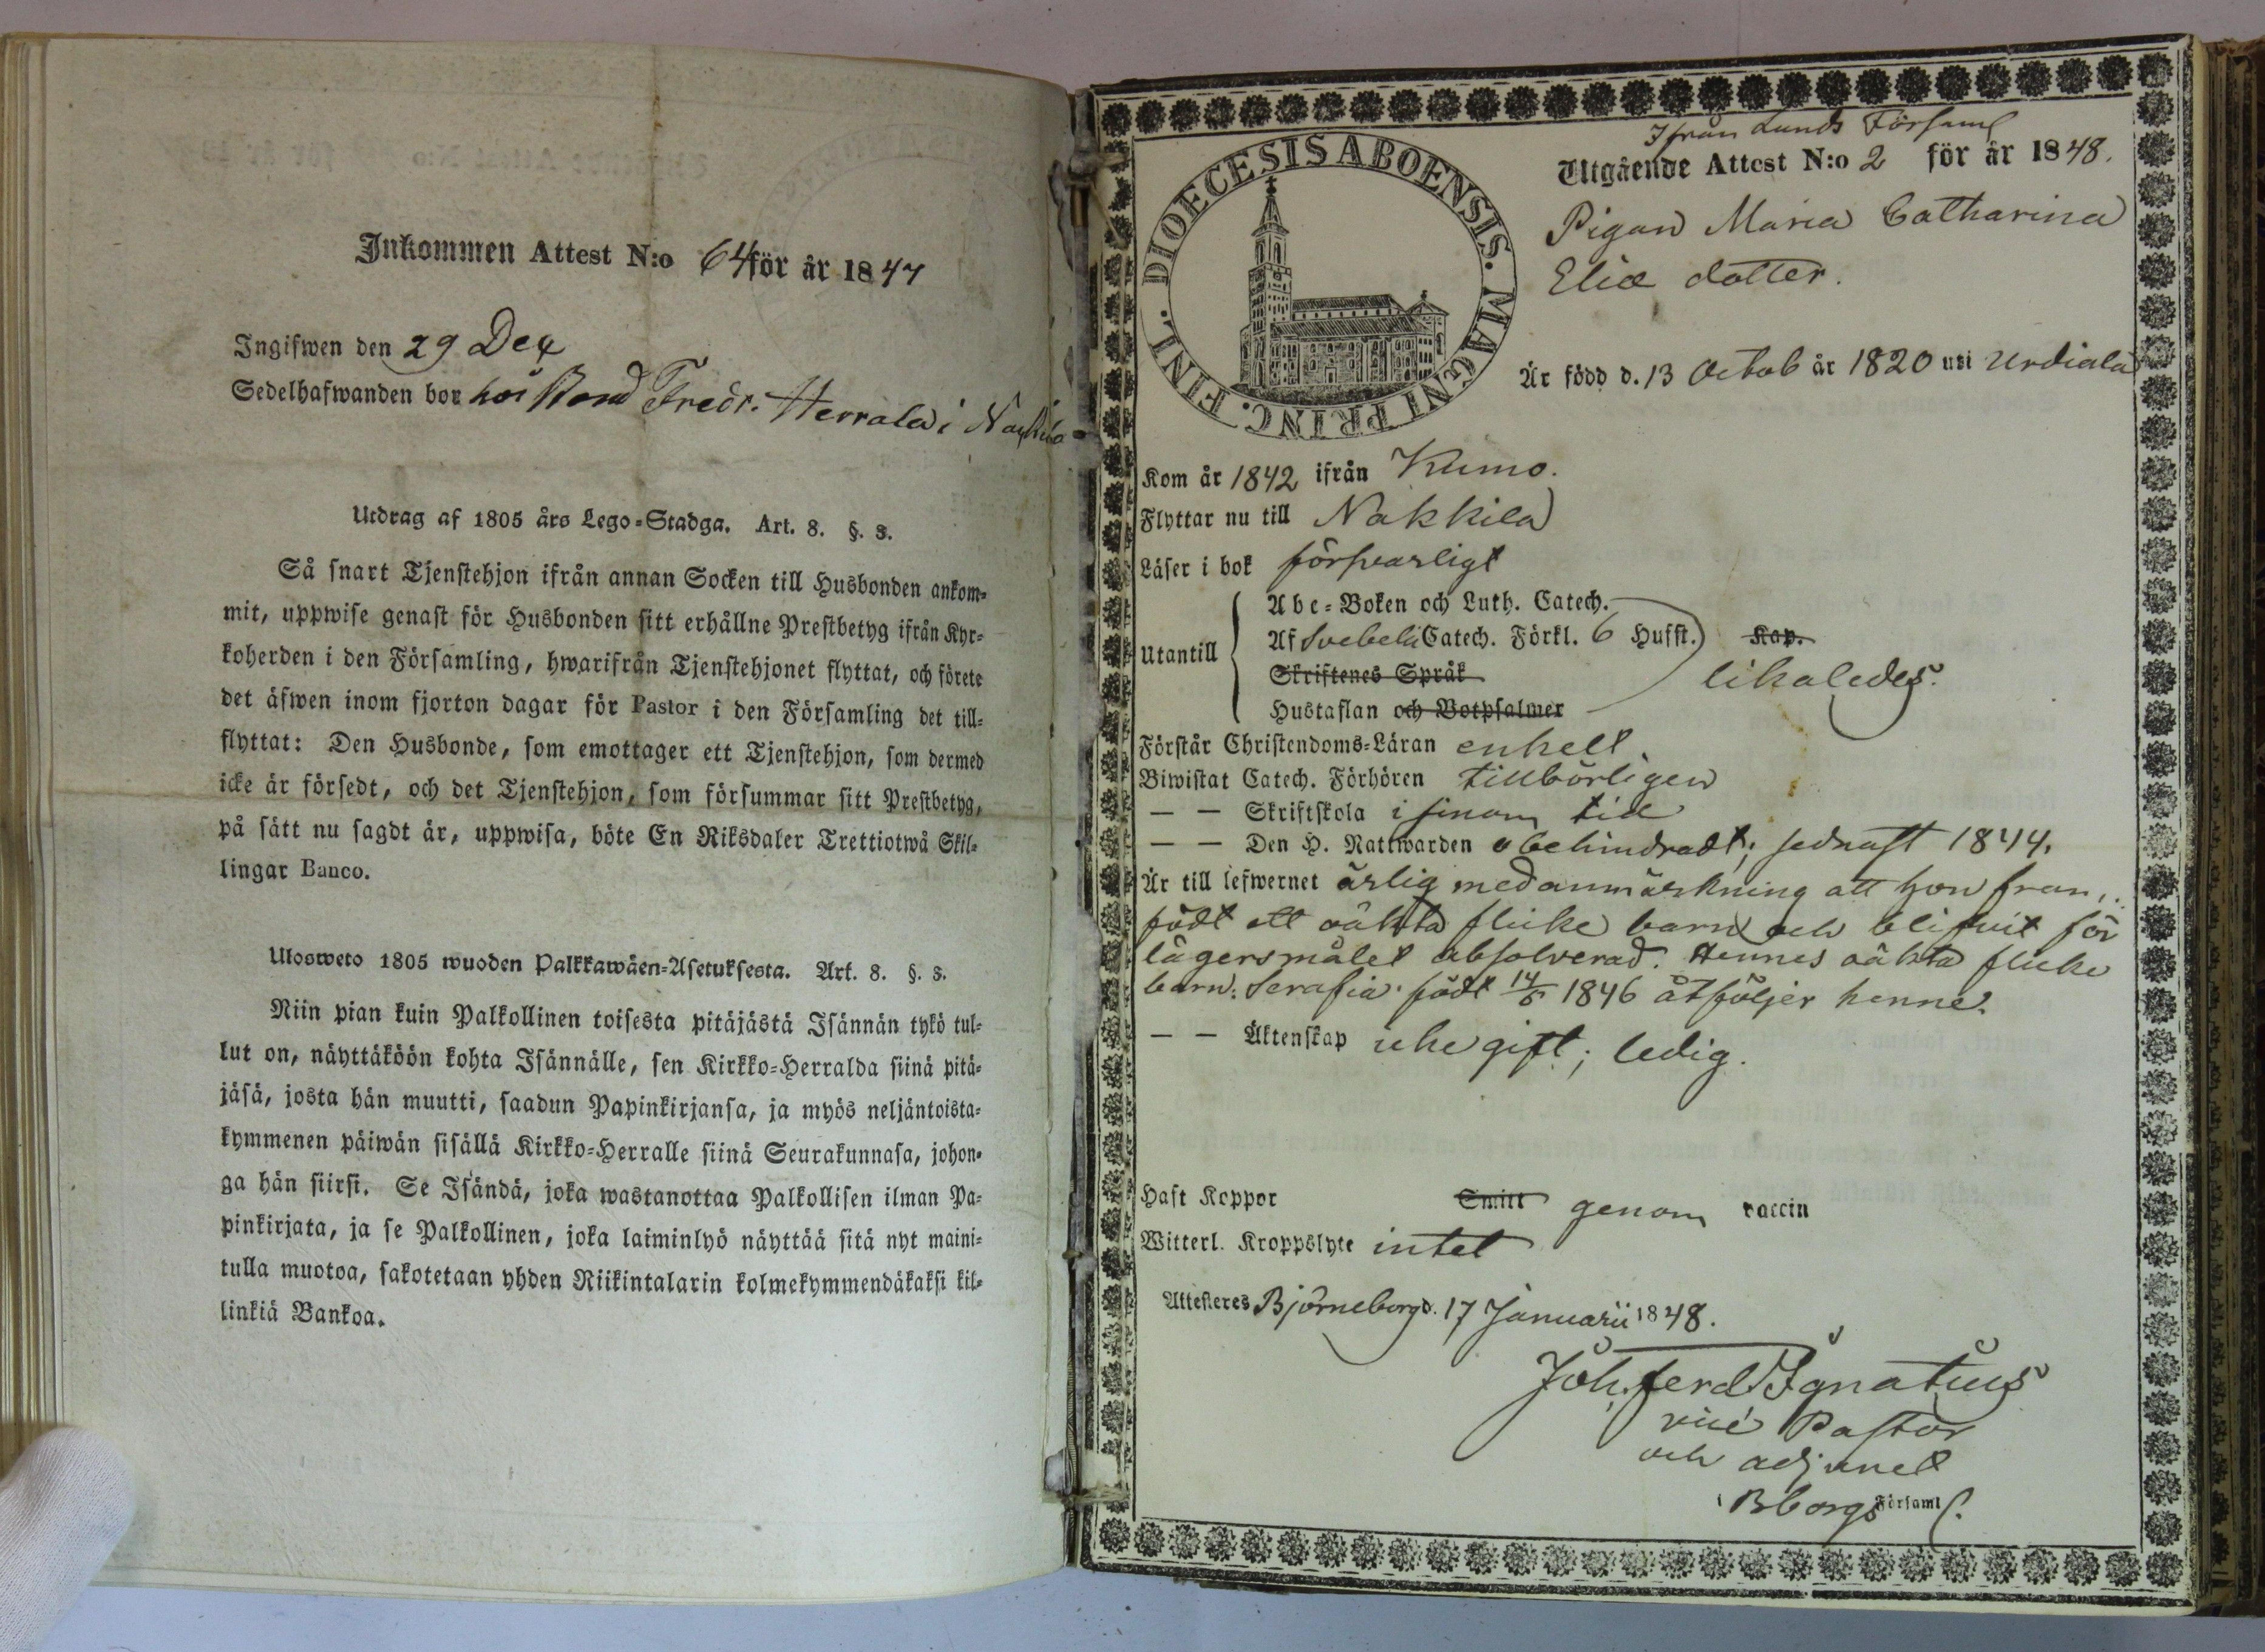 Inkommen Attest N:o 64 för år 1847
Ingifwen den 29 Dec
Sedelhafwanden bor hos Bond Fredr. Herrala i Nackila
Utdrag af 1805 års Lego-Stadga. Art. 8. §. 3.
Så snart Tjenstehjon ifrån annan Socken till Husbonden ankom-
mit, uppwise genast för Husbonden sitt erhållne Prestbetyg ifrån Kyr-
koherden i den Församling, hwarifrån Tjenstehjonet flyttat, och förete
det äfwen inom fjorton dagar för Pastor i den Församling det till-
flyttat: Den Husbonde, som emottager ett Tjenstehjon, som dermed
icke är försedt, och det Tjenstehjon, som försummar sitt Prestbetyg,
på sätt nu sagdt är, uppwisa, böte En Riksdaler Trettiotwå Skil-
lingar Banco.
Ulosweto 1805 wuoden Palkkawäen-Asetuksesta. Art. 8. §. 3.
Niin pian kuin Palkollinen toisesta pitäjästä Isännän tykö tul-
lut on, näyttäköön kohta Isännälle, sen Kirkko-Herralda siinä pitä-
jäsä, josta hän muutti, saadun Papinkirjansa, ja myös neljäntoista-
kymmenen päiwän sisällä Kirkko-Herralle siinä Seurakunnasa, johon-
ga hän siirsi. Se Isändä, joka wastanottaa Palkollisen ilman Pa-
pinkirjata, ja se Palkollinen, joka laiminlyö näyttää sitä nyt maini-
tulla muotoa, sakotetaan yhden Riikintalarin kolmekymmendäkaksi kil-
linkiä Bankoa.
DIOECESIS ABOENSIS. MAGNI PRINC. FINL.
Ifrån Lunds Församl
Utgående Attest N:o 2 för år 1848.
Pigan Maria Catharina
Eliæ dotter.
Är född d. 13 Octob år 1820 uti Urdiala
Kom år 1842 ifrån Kumo.
Flyttar nu till Nakkila
Läser i bok försvarligt
Utantill
Abc-Boken och Luth. Catech.
Af Svebelii Catech. Förkl. 6 Hufst. Kap.
Skriftenes Språk
likaledes.
Hustaflan och Botpsalmer
Förstår Christendoms-Läran enkelt.
Biwistat Catech. Förhören tillbörligen
— — Skriftskola i sinom tid
— — Den H. Nattwarden obehindradt; sednast 1844.
Är till lefwernet ärlig med anmärkning att hon fram
födt ett oäkta flicke barn och blifvit för
lägersmålet absolverad. Hennes oäkta flicke
barn: Serafia födt 14/5 1846 åtföljer henne.
— — Äktenskap icke gift; ledig.
Haft Koppor Smitt genom vaccin
Witterl. Kroppslyte intet
Attesteres Björneborg d. 17 Januarii 1848.
Joh. Ferd Ignatius
vice Pastor
och adjunct
i Bborgs Församl.